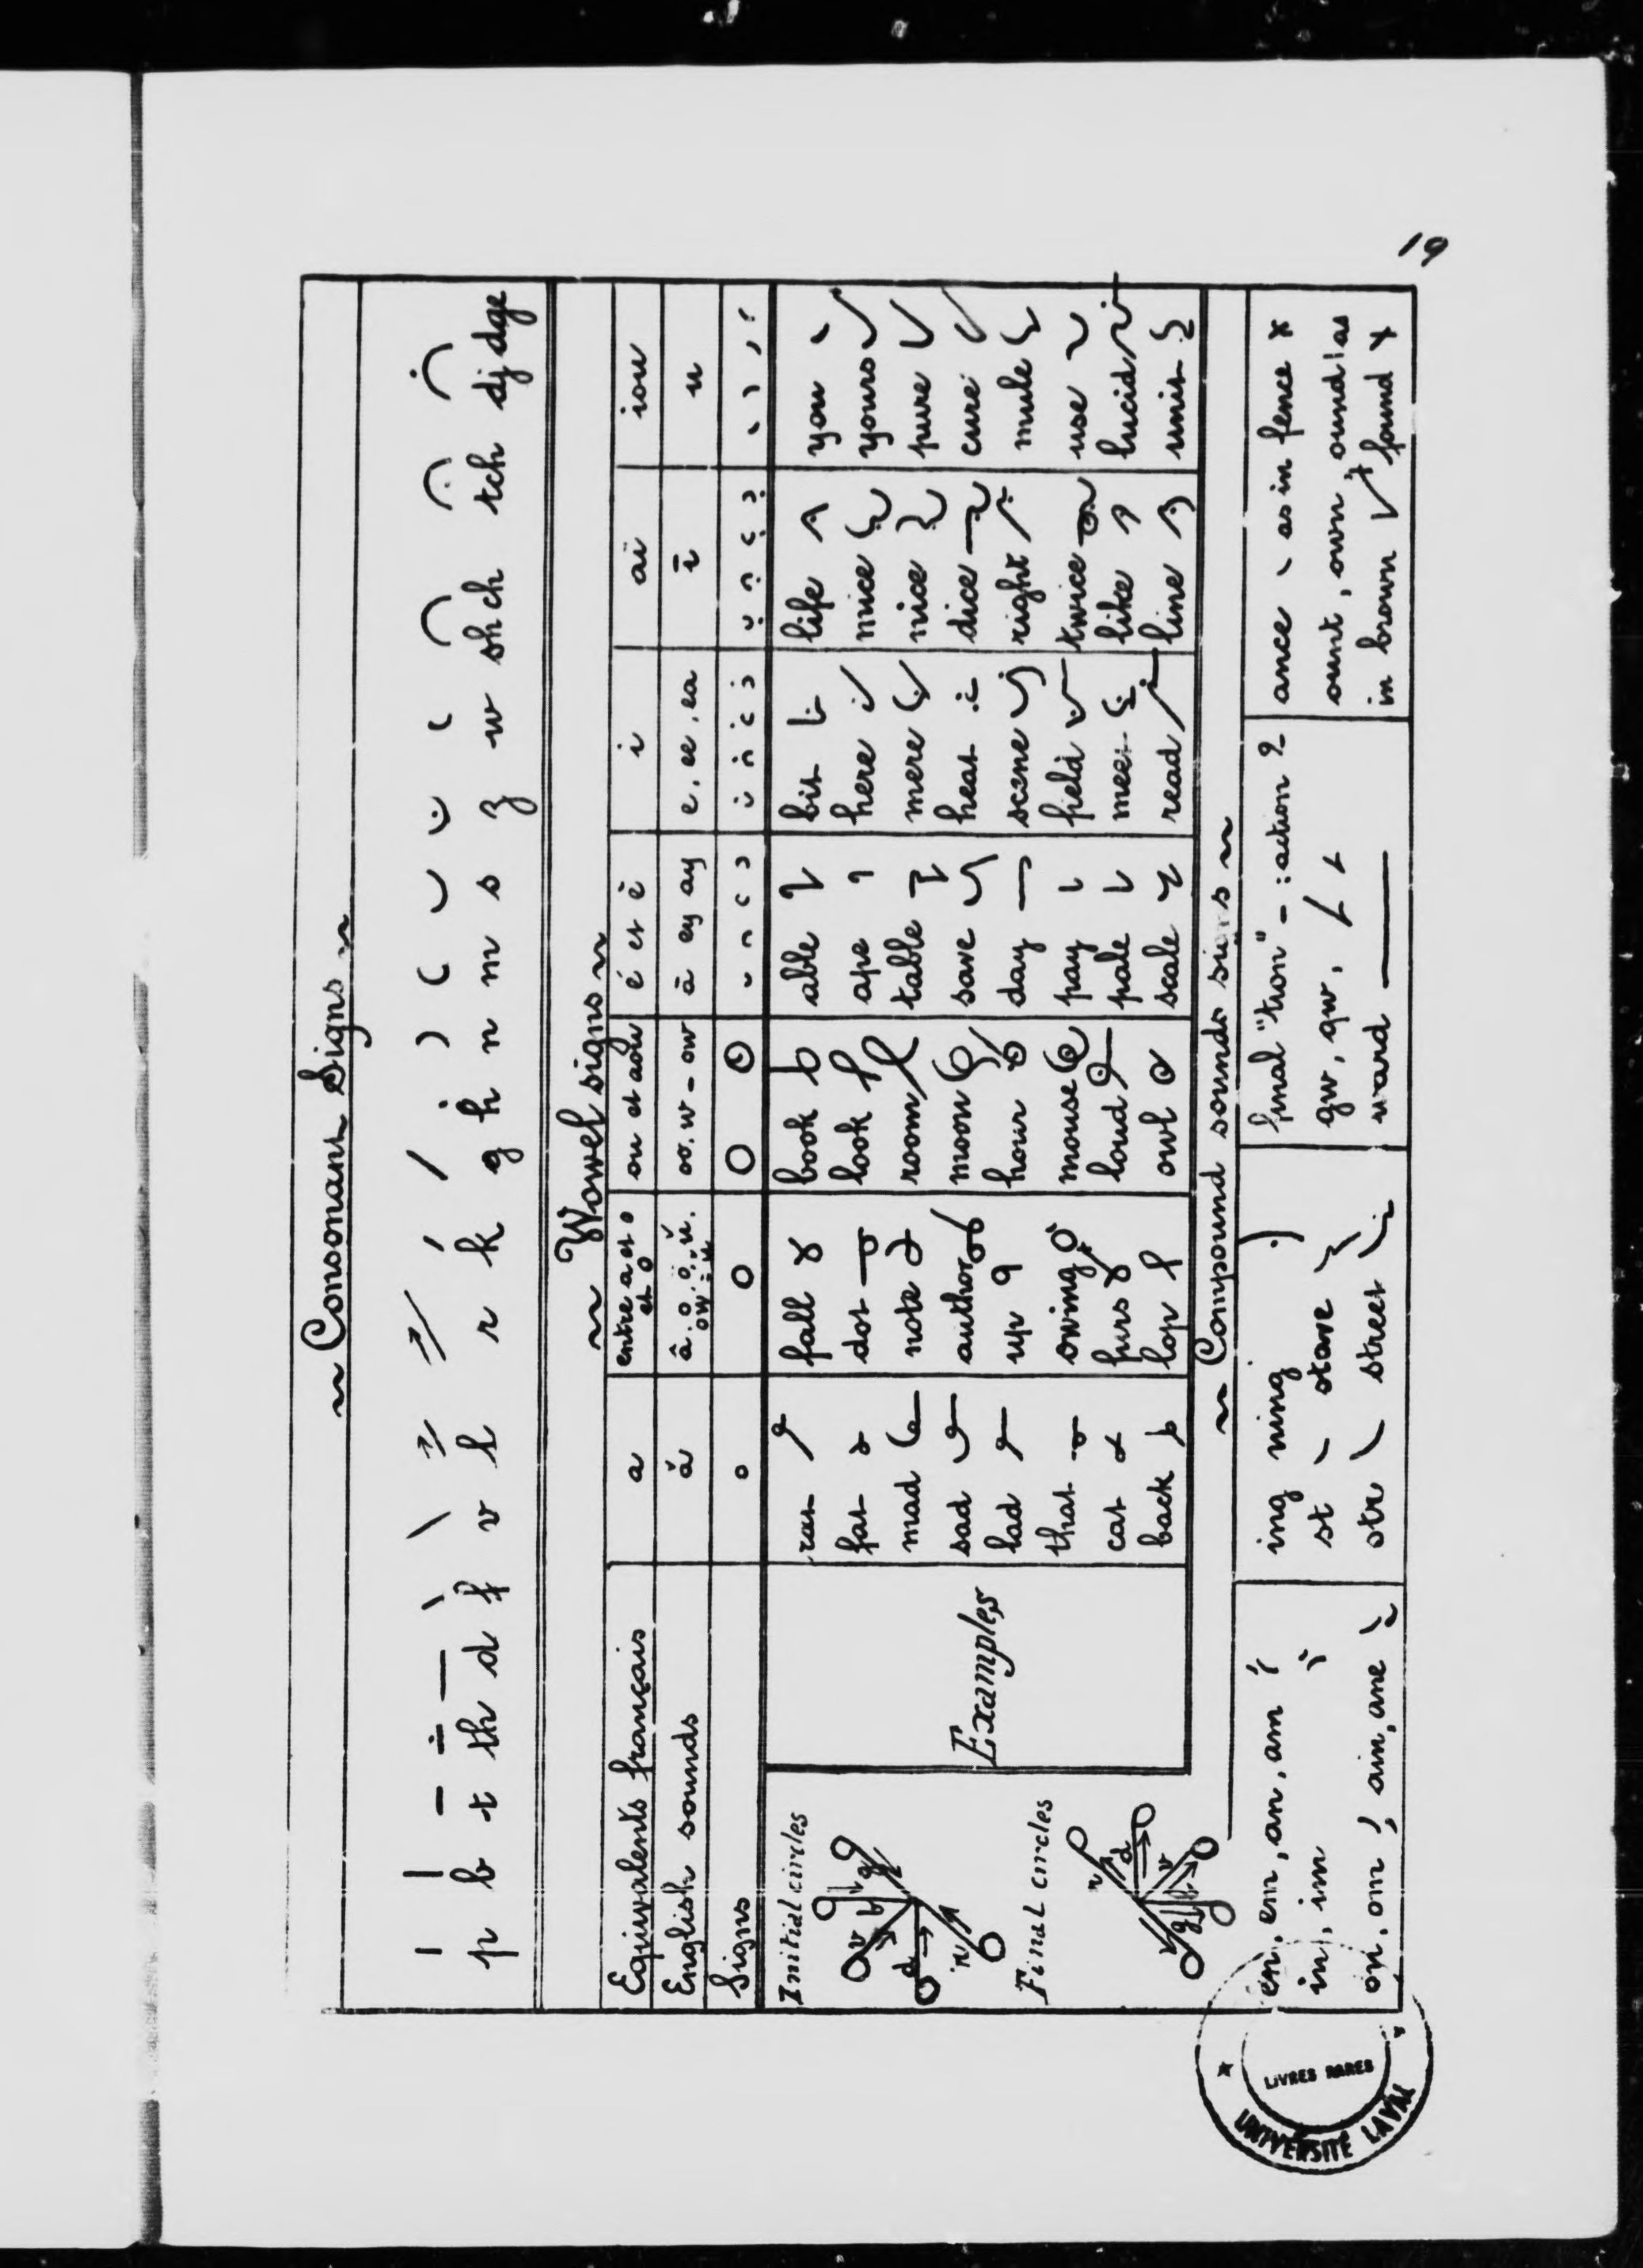 19
~ Consonant Signs ~
p b t th d f v l r k g h n m s z w sh ch tch dj dge
~ Vowel signs ~
Equivalents français a entre a et o et o ou et aou é et è i aï iou
English sounds ă â. o. o. ŭ. ow oo. w - ow ā ey ay e. ee. ea ī u
Signs
Initial circles
v b g
d
r
Final circles
r
d
v
g b
Examples
rat fall book able bit life you
fat dot look ape here mice yours
mad note room table mere nice pure
sad author moon save heat dice cure
lad up hour day scene right mule
that owing mouse pay field twice use
cat furs loud pale meet like lucid
back lop owl scale read line unit
~ Compound sounds signs ~
en, em, an, am
in, im
on, om ; ain, ane
ing ning
st - stove
str street
final "tion" - : action
gw, qw.
ward
ance as in fence
ount, own, ound as
in brown found
UNIVERSITÉ LAVAL
LIVRES RARES